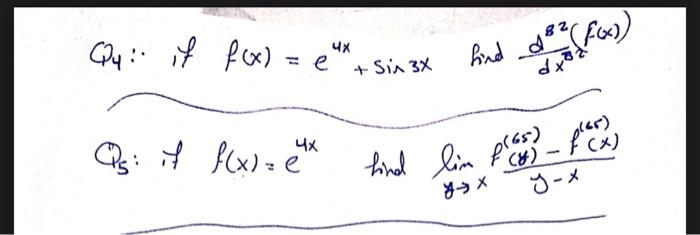 Q4:- if f(x) = e^4x + Sin 3x find d^82(f(x))/dx^82
Q5: if f(x) = e^4x find lim y→x (f^(65)(y) - f^(65)(x))/(y-x)